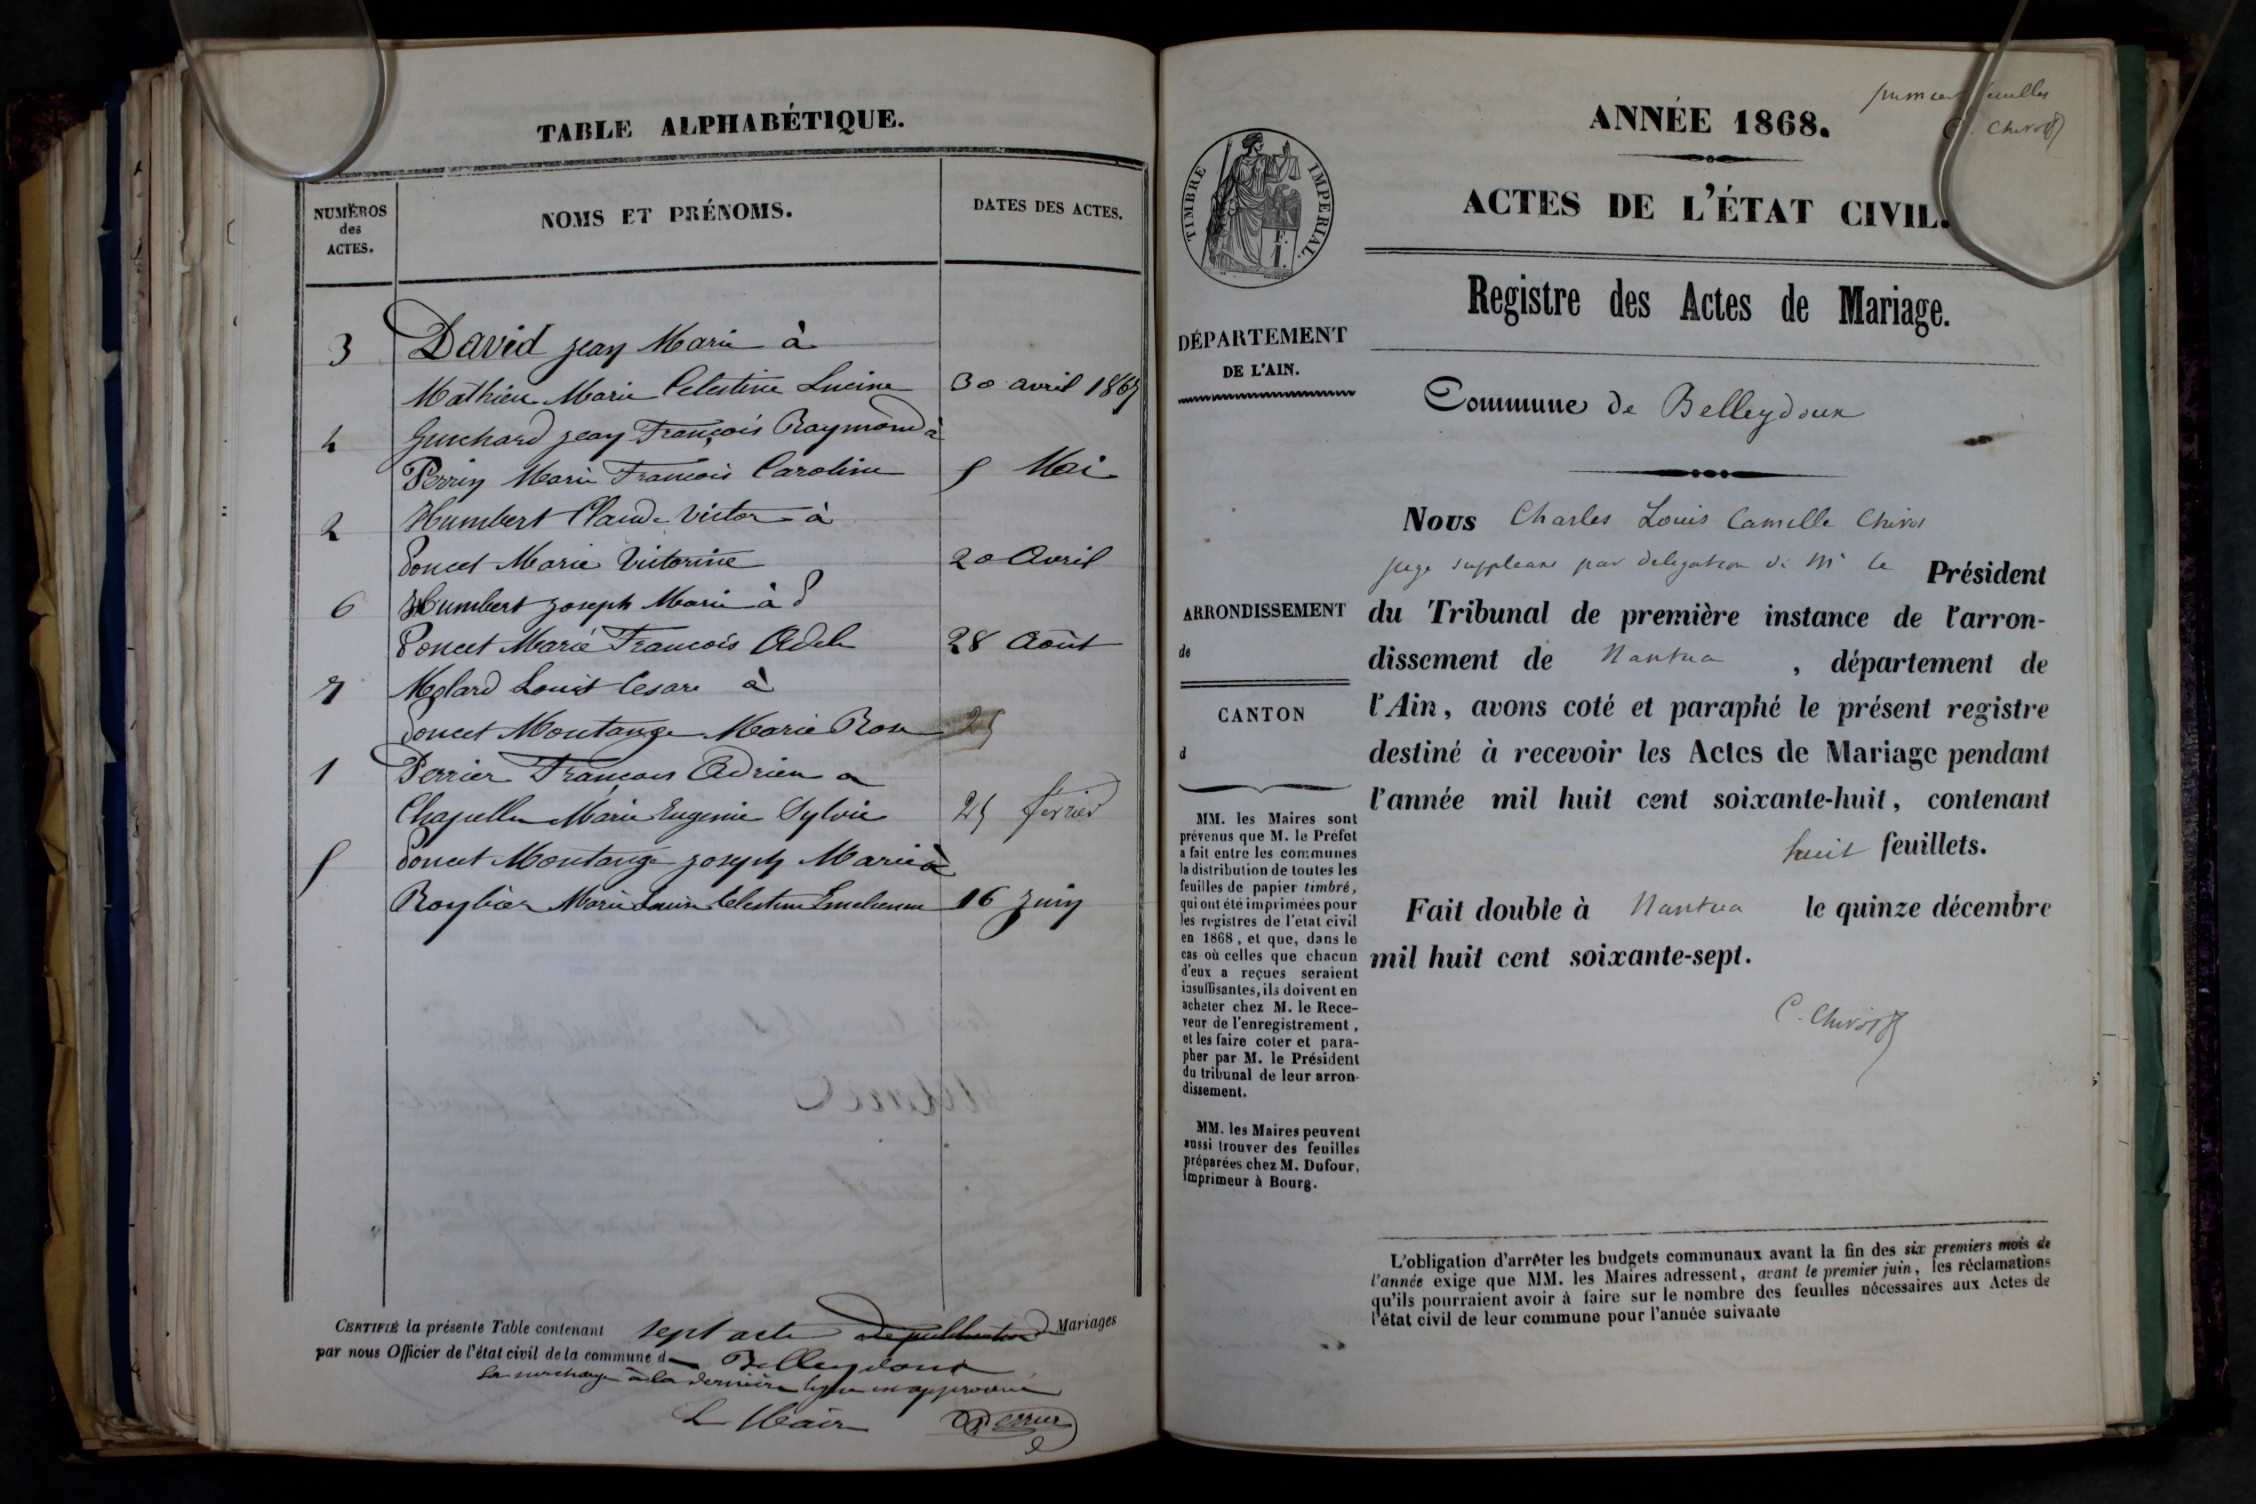 TABLE ALPHABÉTIQUE.
NUMÉROS
des
ACTES.
NOMS ET PRÉNOMS.
DATES DES ACTES.
3 David Jean Marie à
Mathieu Marie Celestine Lucine 30 avril 1867
4 Guichard Jean François Raymond à
Perrin Marie François Caroline 5 Mai
2 Humbert Claude Victor à
Poncet Marie Victorine 20 Avril
6 Humbert Joseph Marie à P
Poncet Marie François Adele 28 Août
7 Molard Louis Cesar à
Poncet Montange Marie Rose 25
1 Perrier François Adrien a
Chapelle Marie Eugenie Sylvie 25 fevrier
5 Poncet Montange Joseph Marie à
Roybier Marie Louise Celestine 16 Juin
CERTIFIÉ la présente Table contenant sept acte de publication de Mariages
par nous Officier de l'état civil de la commune de Belleydoux
La surcharge à la dernière ligne est approuvé
Le Maire Perrier
feuilles
C. Chivot
TIMBRE IMPERIAL.
F.
1.
ANNÉE 1868.
ACTES DE L'ÉTAT CIVIL.
Registre des Actes de Mariage.
DÉPARTEMENT
DE L'AIN.
Commune de Belleydoux
Nous Charles Louis Camille Chivot
juge suppleant par delegation de Mr le Président
du Tribunal de première instance de l'arron-
dissement de Nantua , département de
l'Ain, avons coté et paraphé le présent registre
destiné à recevoir les Actes de Mariage pendant
l'année mil huit cent soixante-huit, contenant
huit feuillets.
Fait double à Nantua le quinze décembre
mil huit cent soixante-sept.
C. Chivot
ARRONDISSEMENT
de
CANTON
d
MM. les Maires sont
prévenus que M. le Préfet
a fait entre les communes
la distribution de toutes les
feuilles de papier timbré,
qui ont été imprimées pour
les registres de l'état civil
en 1868, et que, dans le
cas où celles que chacun
d'eux a reçues seraient
insuffisantes, ils doivent en
acheter chez M. le Rece-
veur de l'enregistrement,
et les faire coter et para-
pher par M. le Président
du tribunal de leur arron-
dissement.
MM. les Maires peuvent
aussi trouver des feuilles
préparées chez M. Dufour,
imprimeur à Bourg.
L'obligation d'arrêter les budgets communaux avant la fin des six premiers mois de
l'année exige que MM. les Maires adressent, avant le premier juin, les réclamations
qu'ils pourraient avoir à faire sur le nombre des feuilles nécessaires aux Actes de
l'état civil de leur commune pour l'année suivante